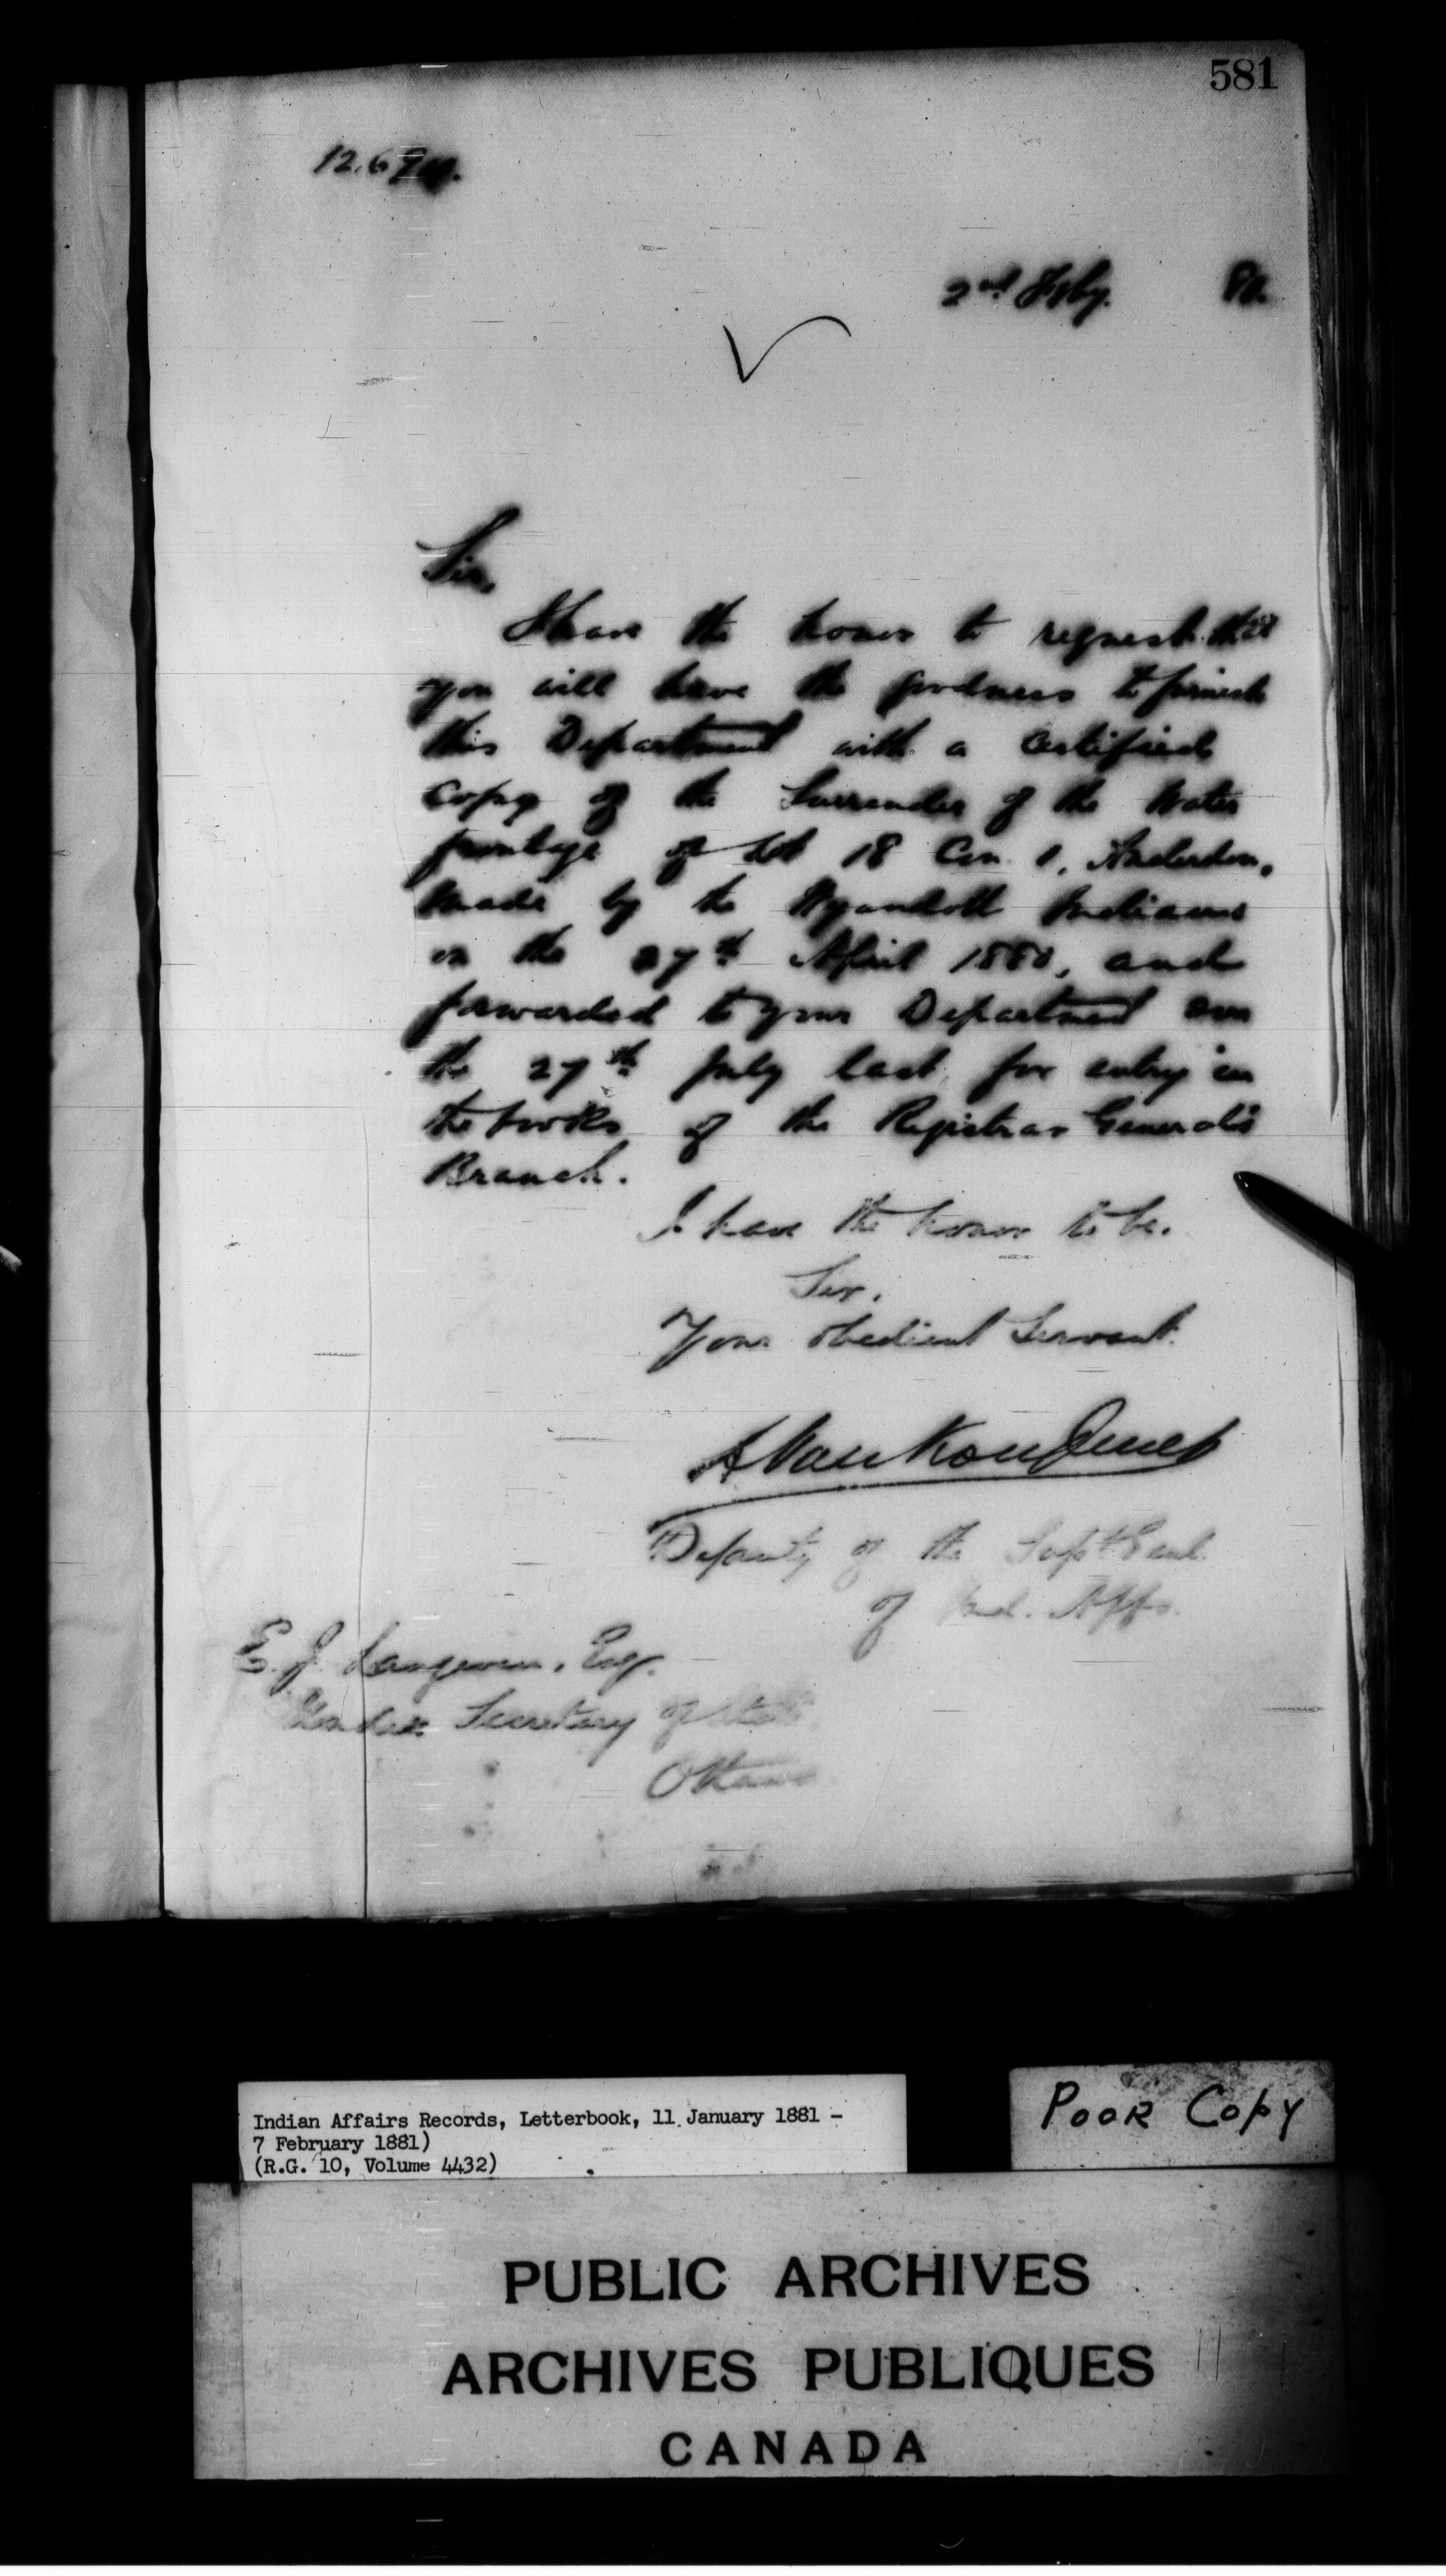 581
2nd Feby.
Sir,
I have the honor to request that
you will have the goodness to furnish
this Department with a certified
Copy of the Surrender of the Water
frontage of Lot 18 Con. 1, Anderdon,
made by the Wyandott Indians
on the 27th April 1880, and
forwarded to your Department on
the 27th July last for entry in
the books of the Registrar General's
Branch.
I have the honor to be.
Sir,
Your obedient Servant.
A VanKoughnet
Deputy of the Supt Genl.
of Ind. Affs.
E. J. Langevin, Esq.
Under Secretary of State
Ottawa
Indian Affairs Records, Letterbook, 11 January 1881 -
7 February 1881)
(R.G. 10, Volume 4432)
POOR COPY
PUBLIC ARCHIVES
ARCHIVES PUBLIQUES
CANADA